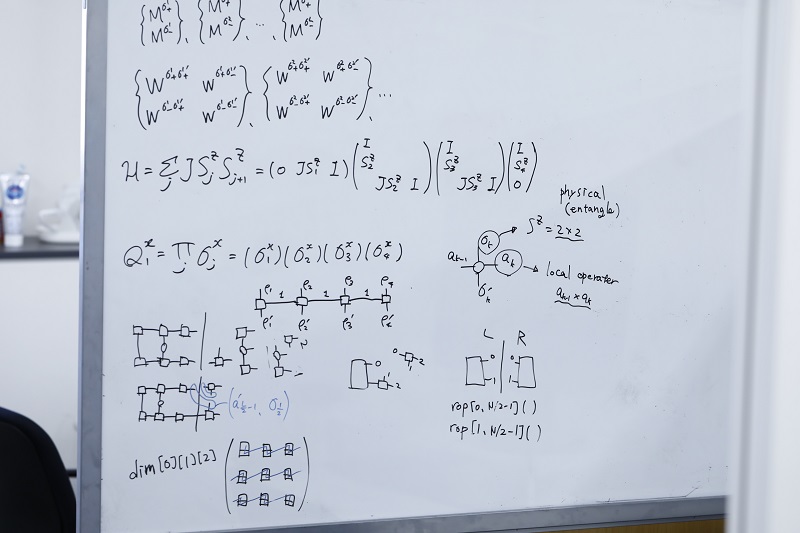 { M^σ¹₊ M^σ¹₋ }, { M^σ²₊ M^σ²₋ }, ... { M }
{ W^σ¹₊σ¹′₊ W^σ¹₊σ¹′₋ }, { W^σ²₊σ²′₊ W^σ²₊σ²′₋ }
{ W^σ¹₋σ¹′₊ W^σ¹₋σ¹′₋ }, { W^σ²₋σ²′₊ W^σ²₋σ²′₋ }, ...
H = Σ_j J S_j^z S_{j+1}^z = (0 JS₁^z I) ( I S₂^z JS₂^z I ) ( I S₃^z JS₃^z I ) ( I S₄^z 0 )
physical
(entangle)
S^z = 2×2
σ_k
a_{k-1} a_k
σ′_k
local operater
a_{k-1} × a_k
Q₁^x = ∏_j σ_j^x = (σ₁^x)(σ₂^x)(σ₃^x)(σ₄^x)
ρ₁ ρ₂ ρ₃ ρ₄
1 1 1
ρ₁′ ρ₂′ ρ₃′ ρ₄′
0 0 2
1 2
L R
0 0
1 1
rop[0, N/2-1]( )
rop[1, N/2-1]( )
dim[0][1][2]